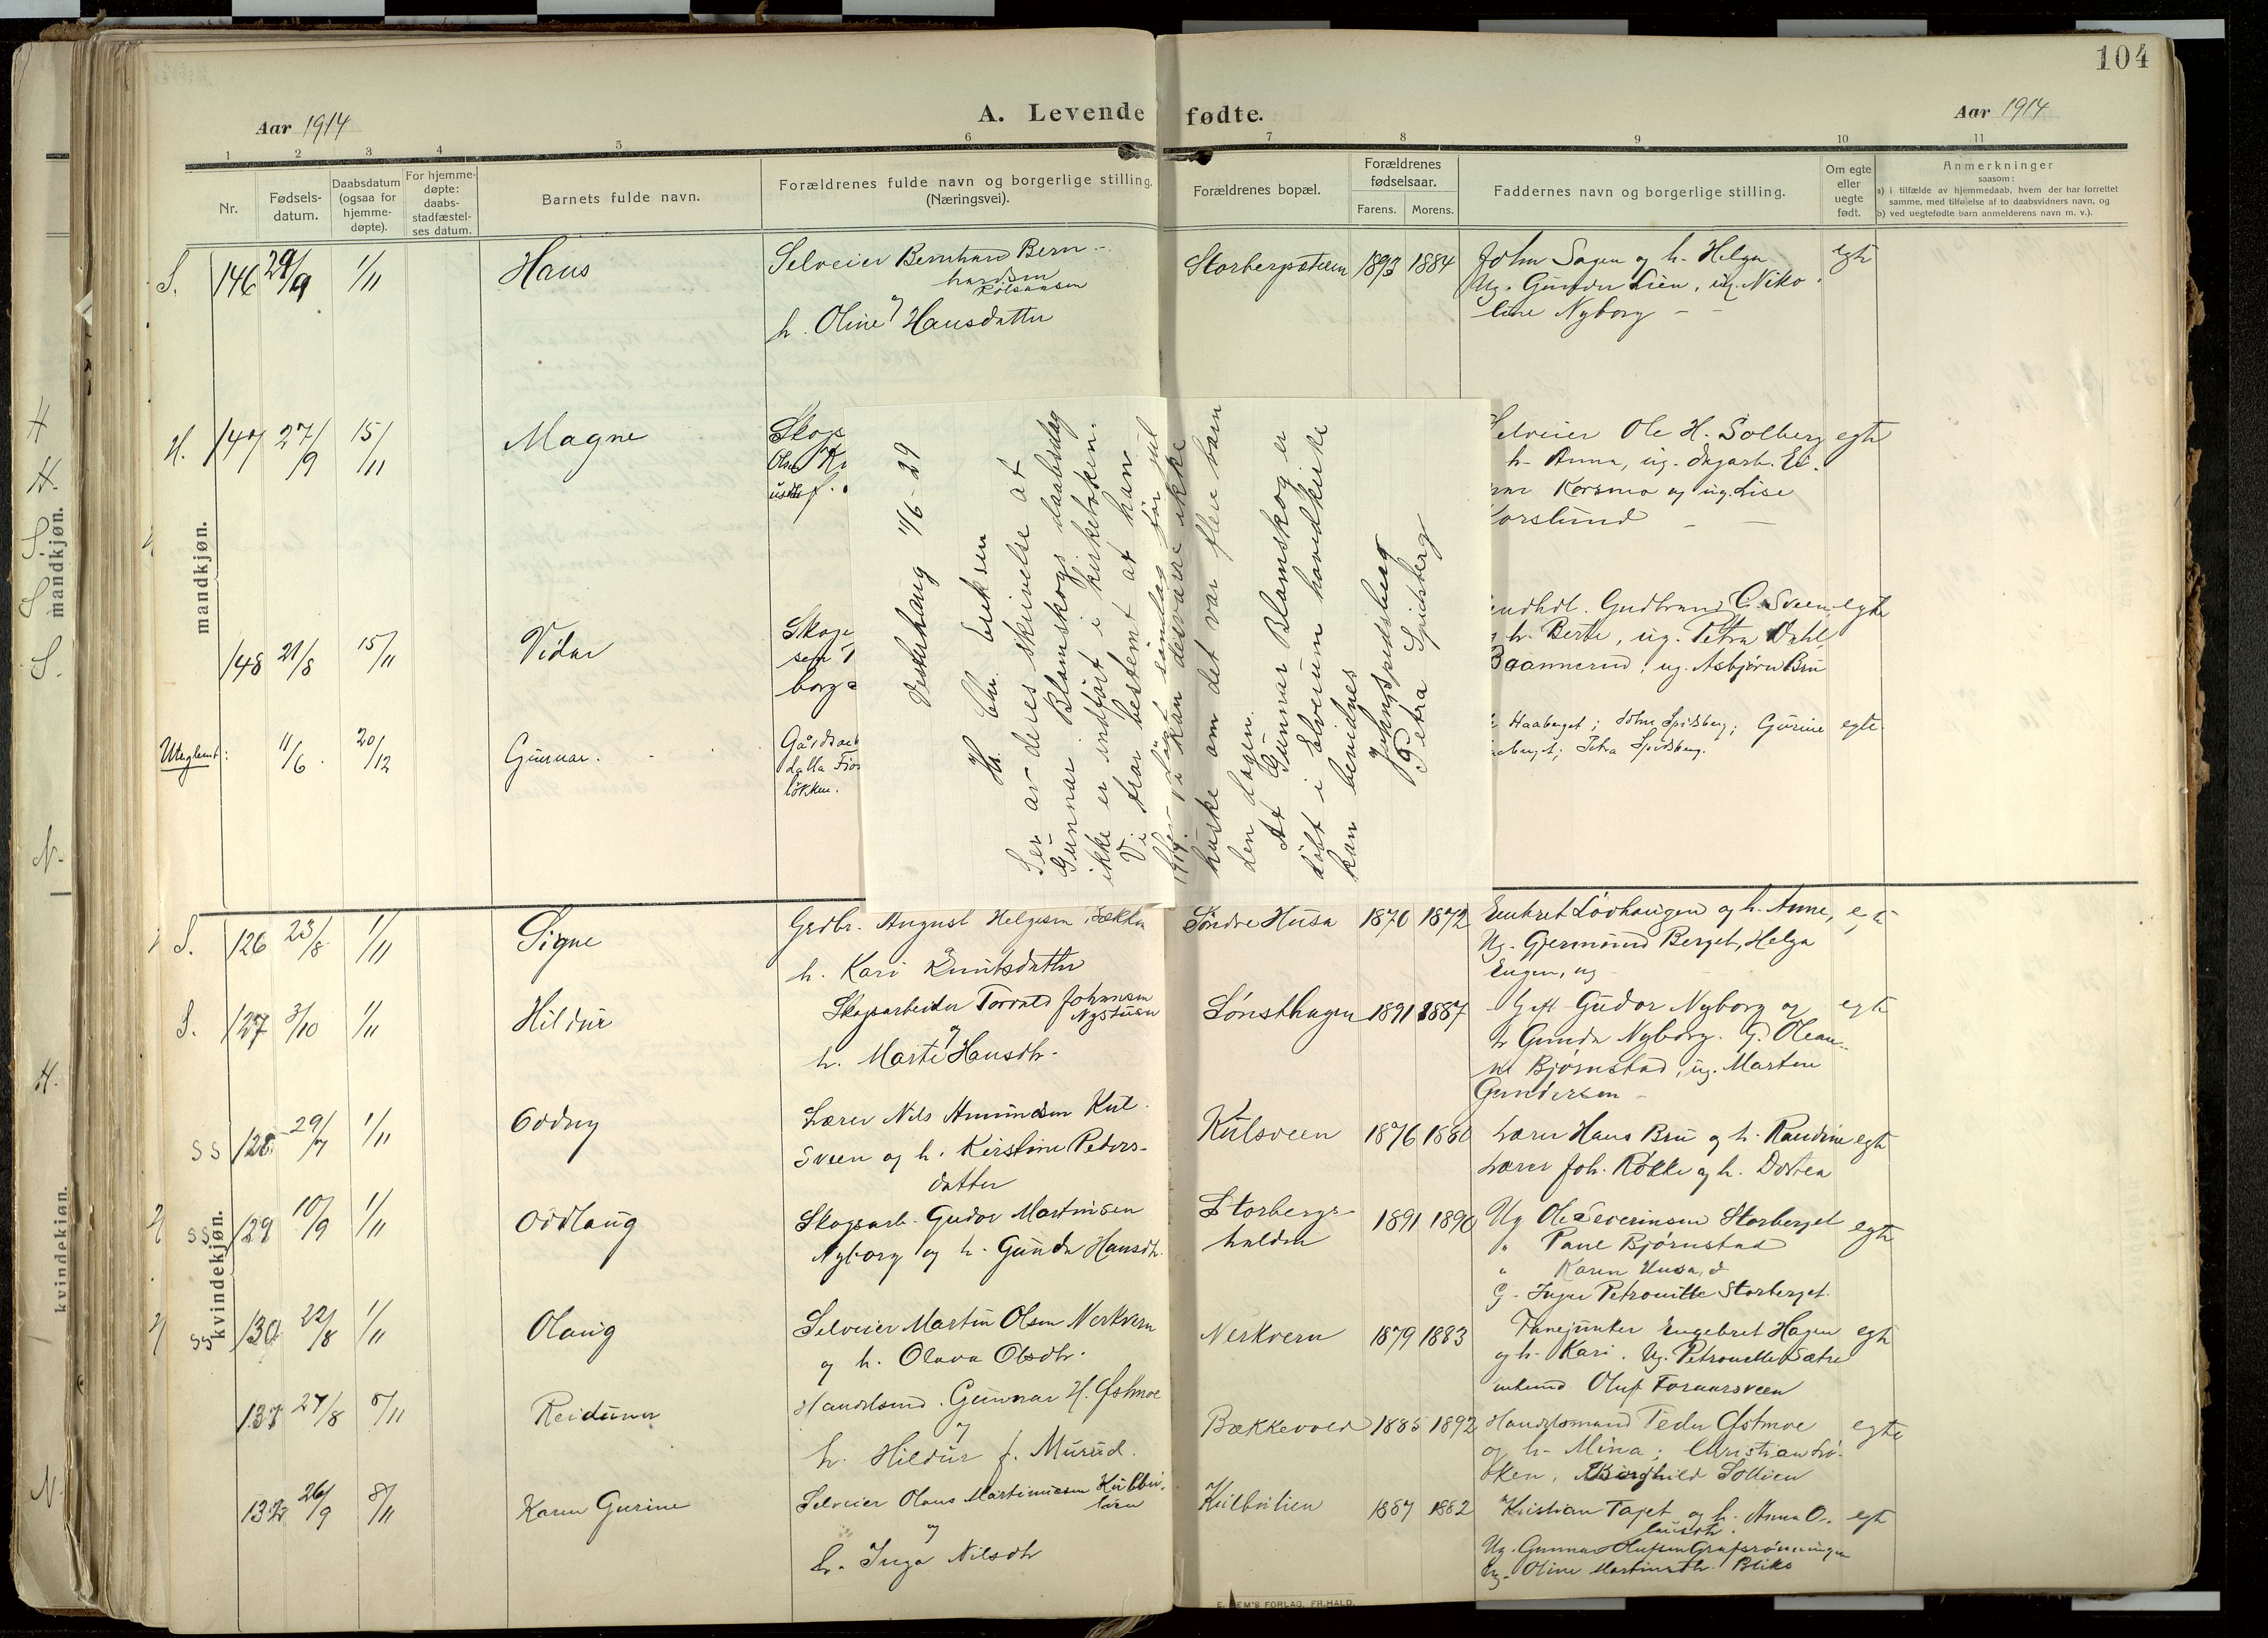 104
A. Levende fødte.
Aar 1914
Aar 1914
1 2 3 4 5 6 7 8 9 10 11
Nr.
Fødsels-
datum.
Daabsdatum
(ogsaa for
hjemme-
døpte).
For hjemme-
døpte:
daabs-
stadfæstel-
ses datum.
Barnets fulde navn.
Forældrenes fulde navn og borgerlige stilling.
(Næringsvei).
Forældrenes bopæl.
Forældrenes
fødselsaar.
Farens. Morens.
Faddernes navn og borgerlige stilling.
Om egte
eller
uegte
født.
Anmerkninger
saasom:
a) i tilfælde av hjemmedaab, hvem der har forrettet
samme, med tilføielse af to daabsvidners navn, og
b) ved uegtefødte barn anmelderens navn m. v.).
mandkjøn.
S. 146 29/9 1/11 Hans
Selveier Bernhard Bern-
hardsen
h. Oline Hansdatter
1893 1884
John Sagen og h. Helga egte
Ug. Gunder Lien, ug. Niko-
line Nyborg
H. 147 27/9 15/11 Magne
Skogs
Selveier Ole H. Solberg egte
h. Anna, ug.
Korsmo og ug. Lise
148 21/8 15/11 Vidar
Skogs
sen
borg
Gudbrand G. Sveen egte
h. Berte, ug. Petra Dahl
ug. Asbjørn Bru
Uteglemt: 11/6 20/12 Gunnar.
Haaberget; John Spidsberg; Gurine egte.
Petra Spidsberg.
løkken.
Vesterhaug 11/6-29
Hr. Chr. Eriksen
Ser av deres skrivelse at
Gunnar Blamskogs daabsdag
ikke er indført i kirkeboken.
Vi tror bestemt at han
1914 kan desværre ikke
huske om det var flere barn
den dagen.
At Gunnar Blamskog er
døbt i Elverum hovedkirke
kan bevidnes
John Spidsberg
Petra Spidsberg
kvindekjøn.
S. 126 23/8 1/11 Signe
Grdbr. August Helgesen
h. Kari Knutsdatter
Søndre Husa 1870 1872
Embret Løvhaugen og h. Anne, egte
Ug. Gjermund Berget, Helga
Engen, ug
S. 127 3/10 1/11 Hildur
Skogsarbeider Torvald Johansen
Nystuen
h. Marte Hansdtr.
Sønsthagen 1891 1887
Gift Gudor Nyborg og egte
h Gunda Nyborg. G. Olean-
ne Bjørnstad, ug. Martin
Gundersen
SS 128 29/7 1/11 Oddny
Lærer Nils Amundsen Kul-
sveen og h. Kirstine Peders-
datter
Kulsveen 1876 1880
Lærer Hans Bru og h. Randine egte
Lærer Joh. Røkke og h. Dortea
SS 129 10/9 1/11 Oddlaug
Skogsarb. Gudor Martinsen
Nyborg og h. Gunda Hansdtr.
Storbergs-
halden 1891 1890
Ug Ole Severinsen Storberget egte
" Paul Bjørnstad
" Karen Husa,
G. Inger Petronille Storberget.
SS 130 22/8 1/11 Olaug
Selveier Martin Olsen Nerkvern
og h. Olava Olsdtr.
Nerkvern 1879 1883
Fanejunker Engebret Hagen egte
og h. Kari. Ug. Petronelle Sætre
Oluf Foraarsveen
131 27/8 8/11 Reidunn
Handelsmd. Gunnar H. Østmoe
og
h. Hildur f. Murud.
Bækkevold 1885 1892
Handelsmand Peder Østmoe egte
og h. Mina; Christian Lø-
ken, Borghild Sollien
132 26/9 8/11 Karen Gurine
Selveier Olaus Martiniusen Kulblik-
lien
og
h. Inga Nilsdtr
1887 1882
Kristian Tajet og h. Anna O- egte
lausdtr.
Ug. Gunnar Olufsen Grafsrønningen
Ug. Oline Martinsdtr.
FORLAG, FR.HALD.
mandkjøn.
kvindekjøn.